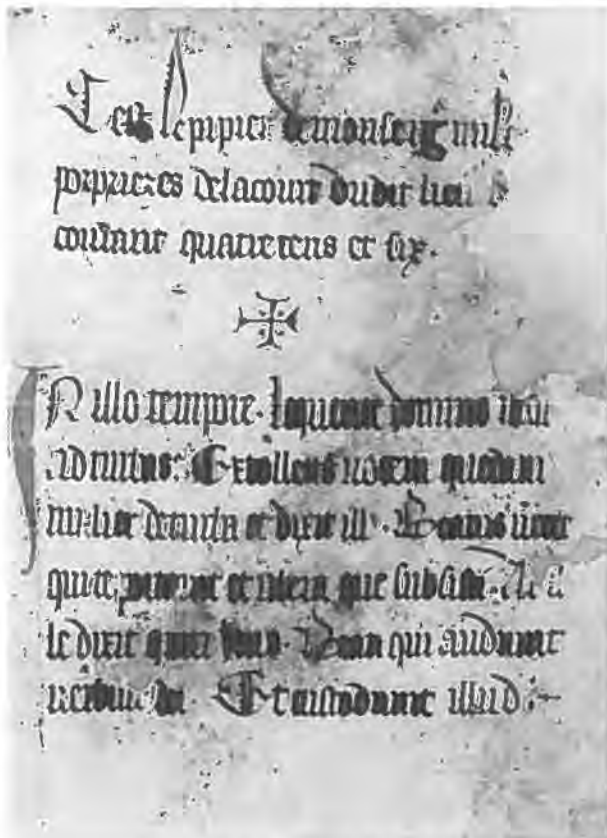 Cest le pipier de monseig
porprietes de la court dudit lieu
courant quatre cens et six.
IN illo tempore. Loquente domino iesu
Ad turbas. Extollens vocem quedam
mulier de turba et dixit illi. Beatus venter
qui te portavit et ubera que
le dixit quin Beati qui audiunt
verbum dei. Et custodiunt illud